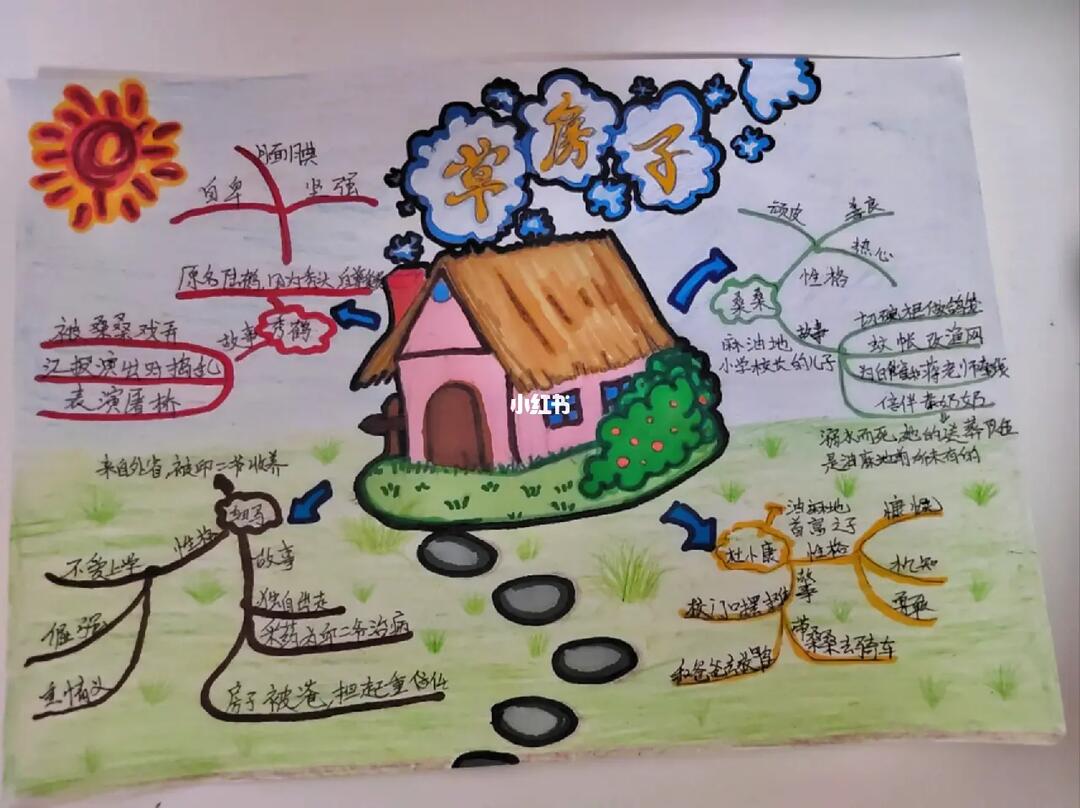 草房子
自卑
坚强
秃鹤
故事
被桑桑戏弄
汇报演出时捣乱
表演屠桥
小红书
顽皮
善良
热心
性格
桑桑
故事
麻油地
小学校长的儿子
切碗柜做鸽笼
蚊帐改渔网
陪伴秦奶奶
溺水而死,她的送葬队伍
是油麻地前所未有的
来自外省,被邱二爷收养
性格
不爱上学
倔强
重情义
故事
独自出走
采药为邱二爷治病
房子被淹,担起重任
杜小康
油麻地
首富之子
性格
慷慨
机知
勇敢
故事
校门口摆摊
带桑桑去骑车
和爸爸去放鸭